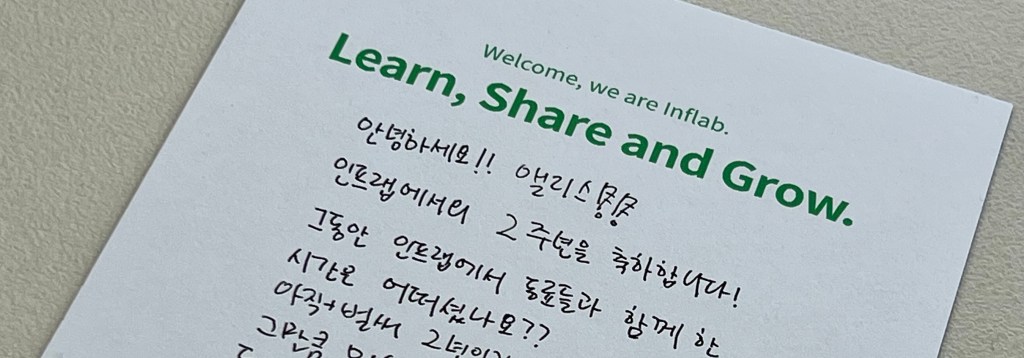 Welcome, we are Inflab.
Learn, Share and Grow.
안녕하세요!! 앨리스
인프랩에서의 2주년을 축하합니다!
그동안 인프랩에서 동료들과 함께 한
시간은 어떠셨나요??
아직+벌써 2년이
그만큼